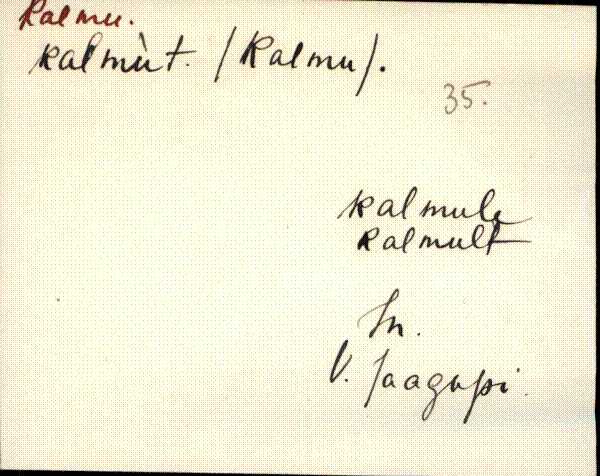 Kalmu.
kalmùt. (Kalmu).
35.
kalmule
kalmult
In.
V. Jaagupi.